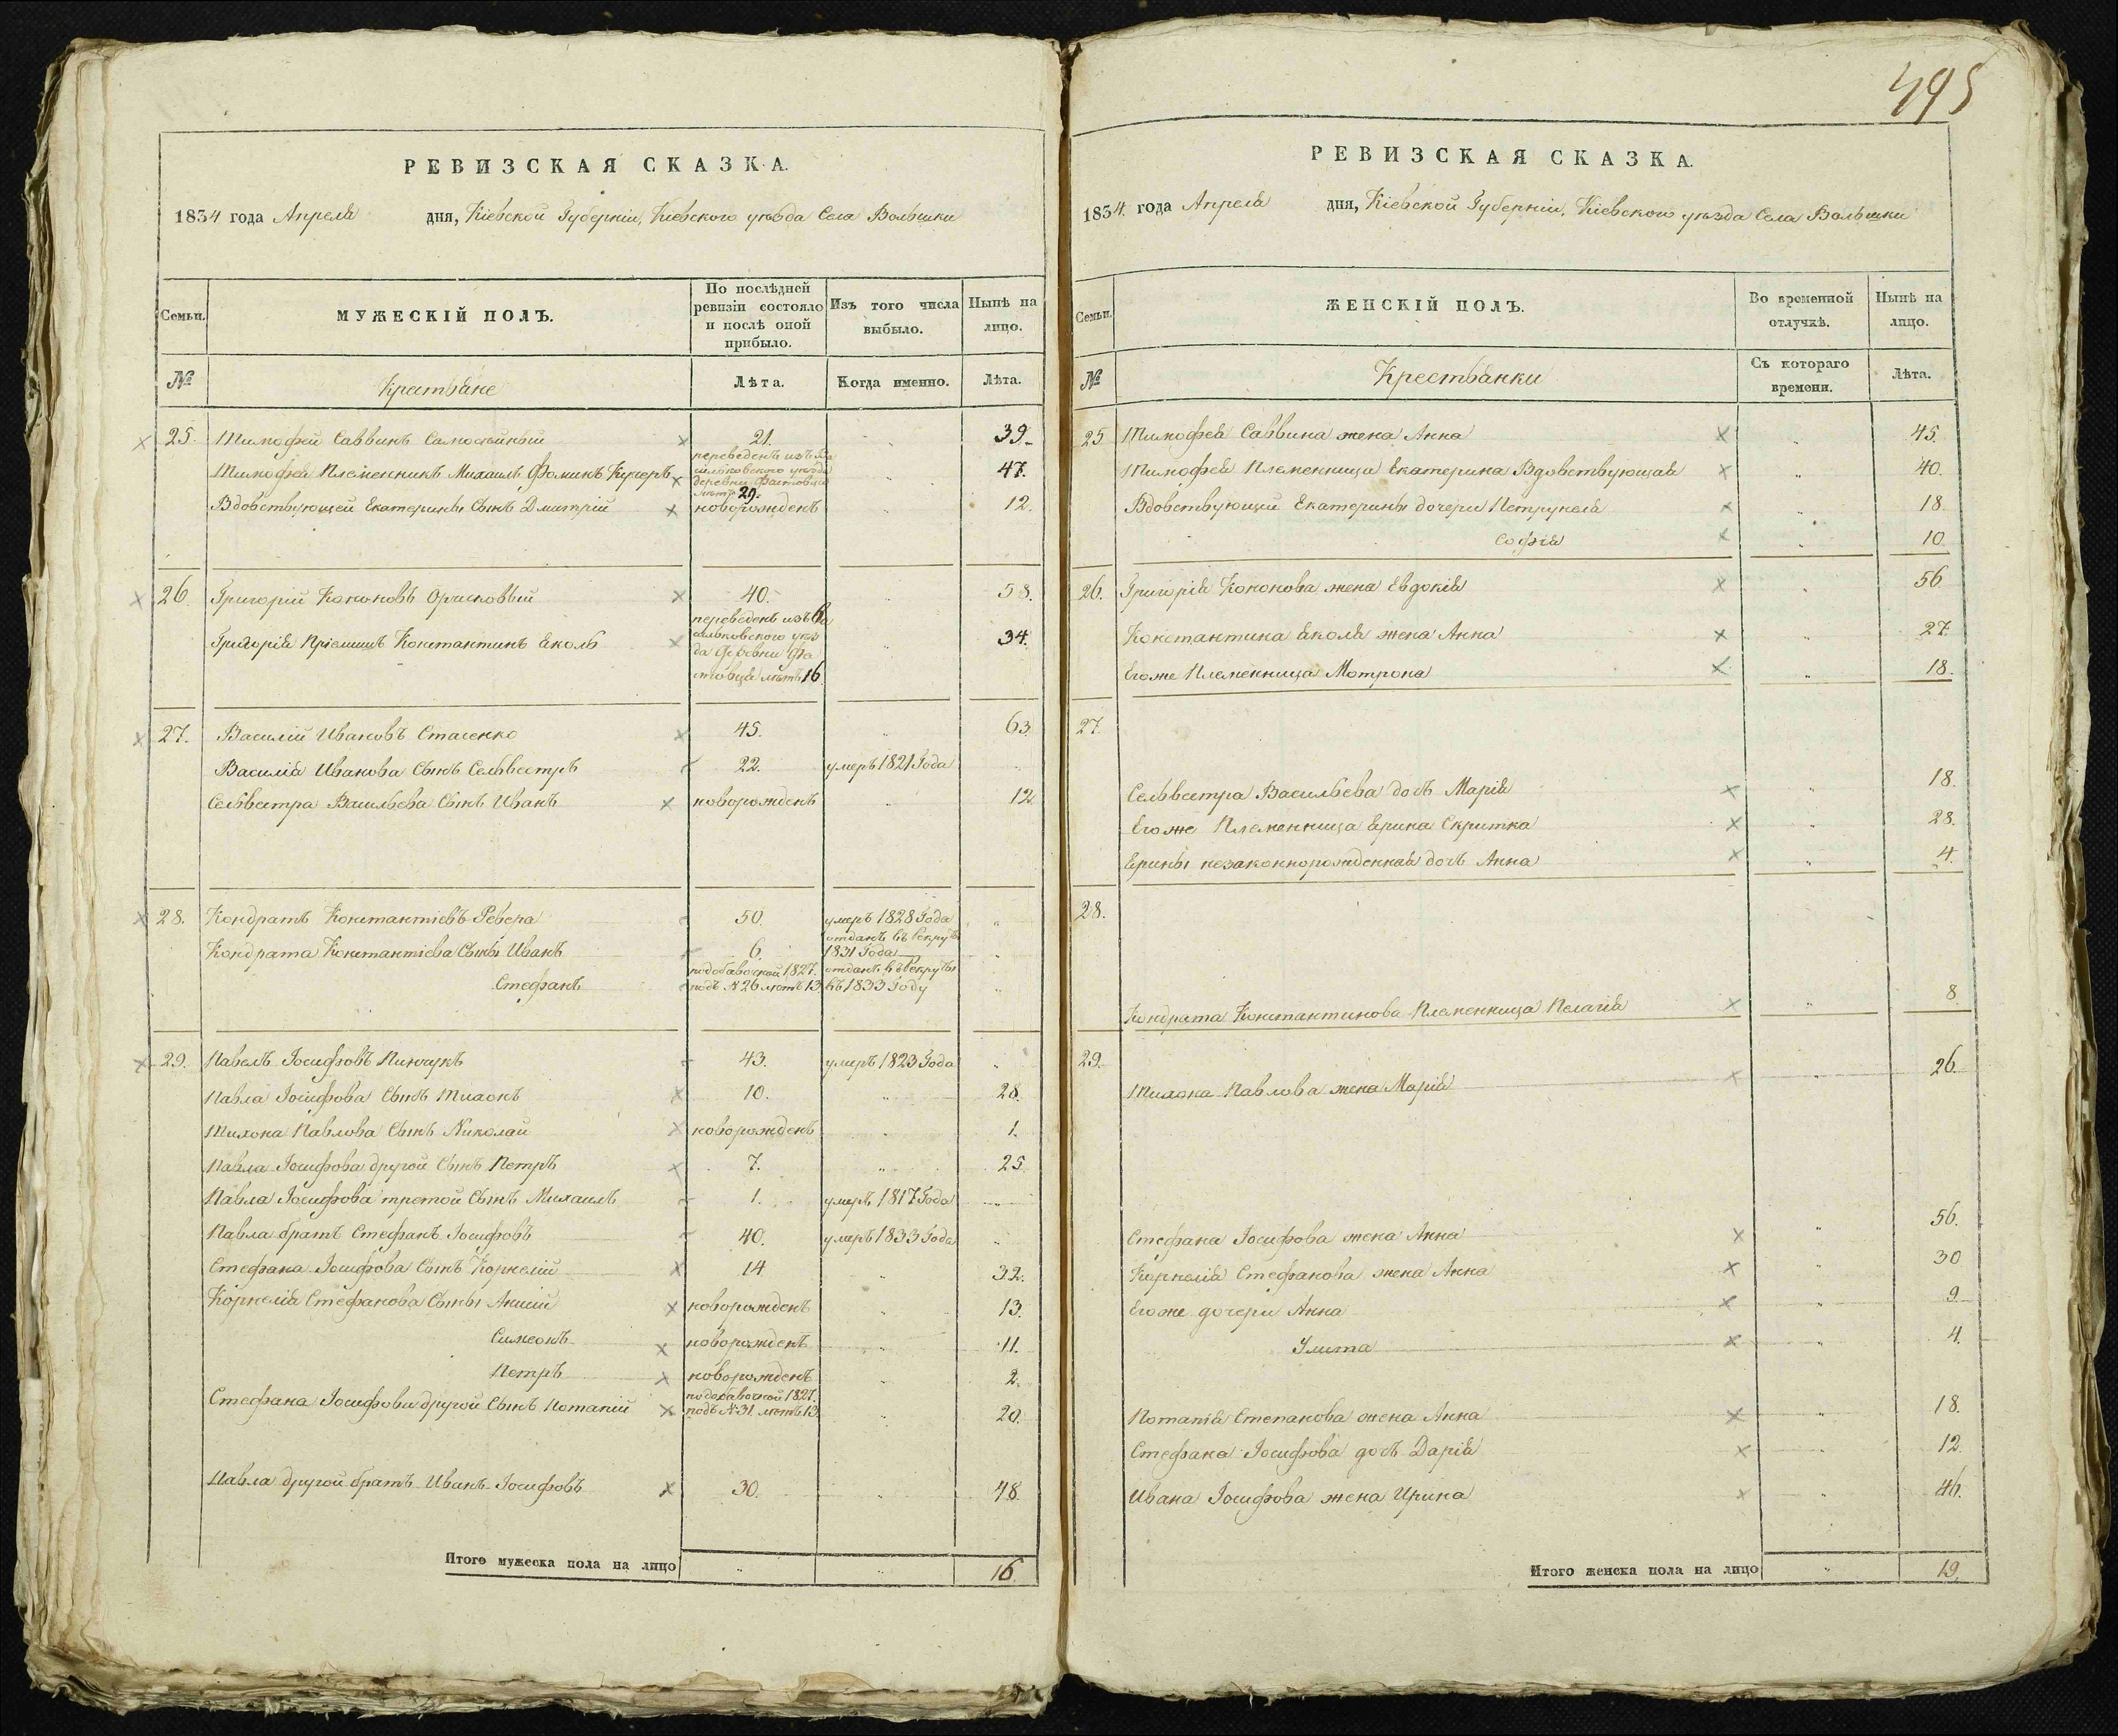 495
РЕВИЗСКАЯ СКАЗКА.
1834 года Апреля дня, Кіевской Губерніи, Кіевского уезда Села Волышки
Семьи.
МУЖЕСКІЙ ПОЛЪ.
По послѣдней ревизіи состояло и послѣ оной прибыло.
Изъ того числа выбыло.
Нынѣ на лицо.
№
Крестьяне
Лѣта.
Когда именно.
Лѣта.
25. Тимофей Саввинъ 21. 39.
Тимофея Племенникъ Михаилъ Фоминъ Кучеръ переведенъ изъ Васильковского уезда деревни Фастовца летъ 29. 47.
Вдовствующей Екатерины Сынъ Дмитрій новорожденъ 12.
26 Григорій Кононовъ 40. 58.
Григорія Пріемишъ Константинъ Еколь переведенъ изъ Васильковского уезда деревни Фастовца летъ 16 34.
27. Василій Ивановъ Стасенко 45. 63.
Василія Иванова Сынъ Сельвестръ 22. умеръ 1821 Года
Сельвестра Васильева Сынъ Иванъ новорожденъ 12
28. Кондратъ Константіевъ Ревера 50. умеръ 1828 Года
Кондрата Константіева Сыны Иванъ 6. отданъ въ Рекруты 1831 Года
Стефанъ подобавочной 1827. подъ №26 летъ 13 отданъ въ Рекруты въ 1833 Году
29. Павелъ Іосифовъ Пинчукъ 43. умеръ 1823 Года
Павла Іосифова Сынъ Тихонъ 10. 28.
Тихона Павлова Сынъ Николай новорожденъ 1.
Павла Іосифова другой Сынъ Петръ 7. 25.
Павла Іосифова третой Сынъ Михаилъ 1. умеръ 1817 Года
Павла братъ Стефанъ Іосифовъ 40. умеръ 1833 Года
Стефана Іосифова Сынъ Корнелій 14 32.
Корнелія Стефанова Сыны новорожденъ 13.
Симеонъ новорожденъ 11.
Петръ новорожденъ 2.
Стефана Іосифова другой Сынъ Потапій подобавочной 1827. подъ №31 летъ 13 20.
Павла другой братъ Иванъ Іосифовъ 30. 48.
Итого мужеска пола на лицо 16.
РЕВИЗСКАЯ СКАЗКА.
1834. года Апреля дня, Кіевской Губерніи, Кіевского уезда Села Волышки
Семьи.
ЖЕНСКІЙ ПОЛЪ.
Во временной отлучкѣ.
Нынѣ на лицо.
№
Крестьянки
Съ котораго времени.
Лѣта.
25 Тимофея Саввина жена Анна 45.
Тимофея Племенница Екатерина Вдовствующая 40.
Вдовствующей Екатерины дочери Петрунеля 18.
Софія 10
26. Григорія Кононова жена Евдокія 56
Константина Еколя жена Анна 27.
Егоже Племенница Мотрона 18.
27.
Сельвестра Васильева дочь Марія 18.
Егоже Племенница Ерина Скритка 28.
Ерины незаконнорожденная дочь Анна 4.
28.
Кондрата Константинова Племенница Пелагія 8
29.
Тихона Павлова жена Марія 26.
Стефана Іосифова жена Анна 56.
Корнелія Стефанова жена Анна 30
Егоже дочери Анна 9
Улита 4.
Потапія Степанова жена Анна 18.
Стефана Іосифова дочь Дарія 12.
Ивана Іосифова жена Ирина 46.
Итого женска пола на лицо 19.